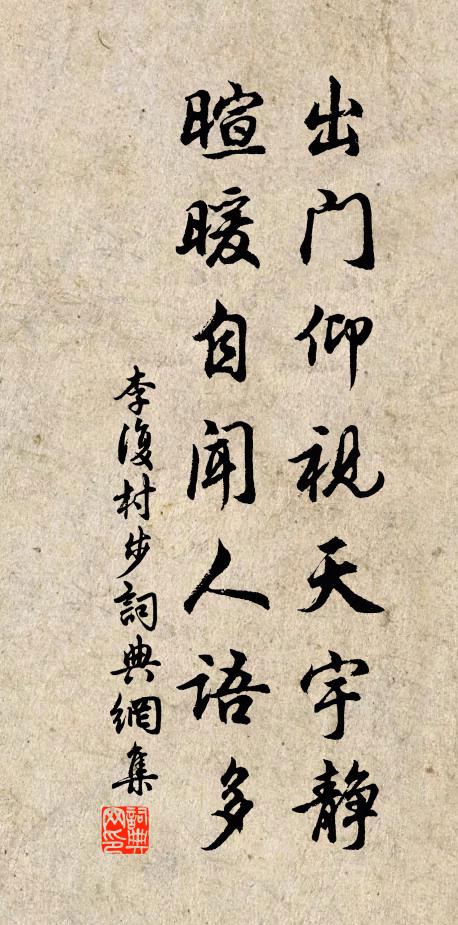 出门仰视天宇静
暄暖自闻人语多
李復村步詞典網集
詞典网印